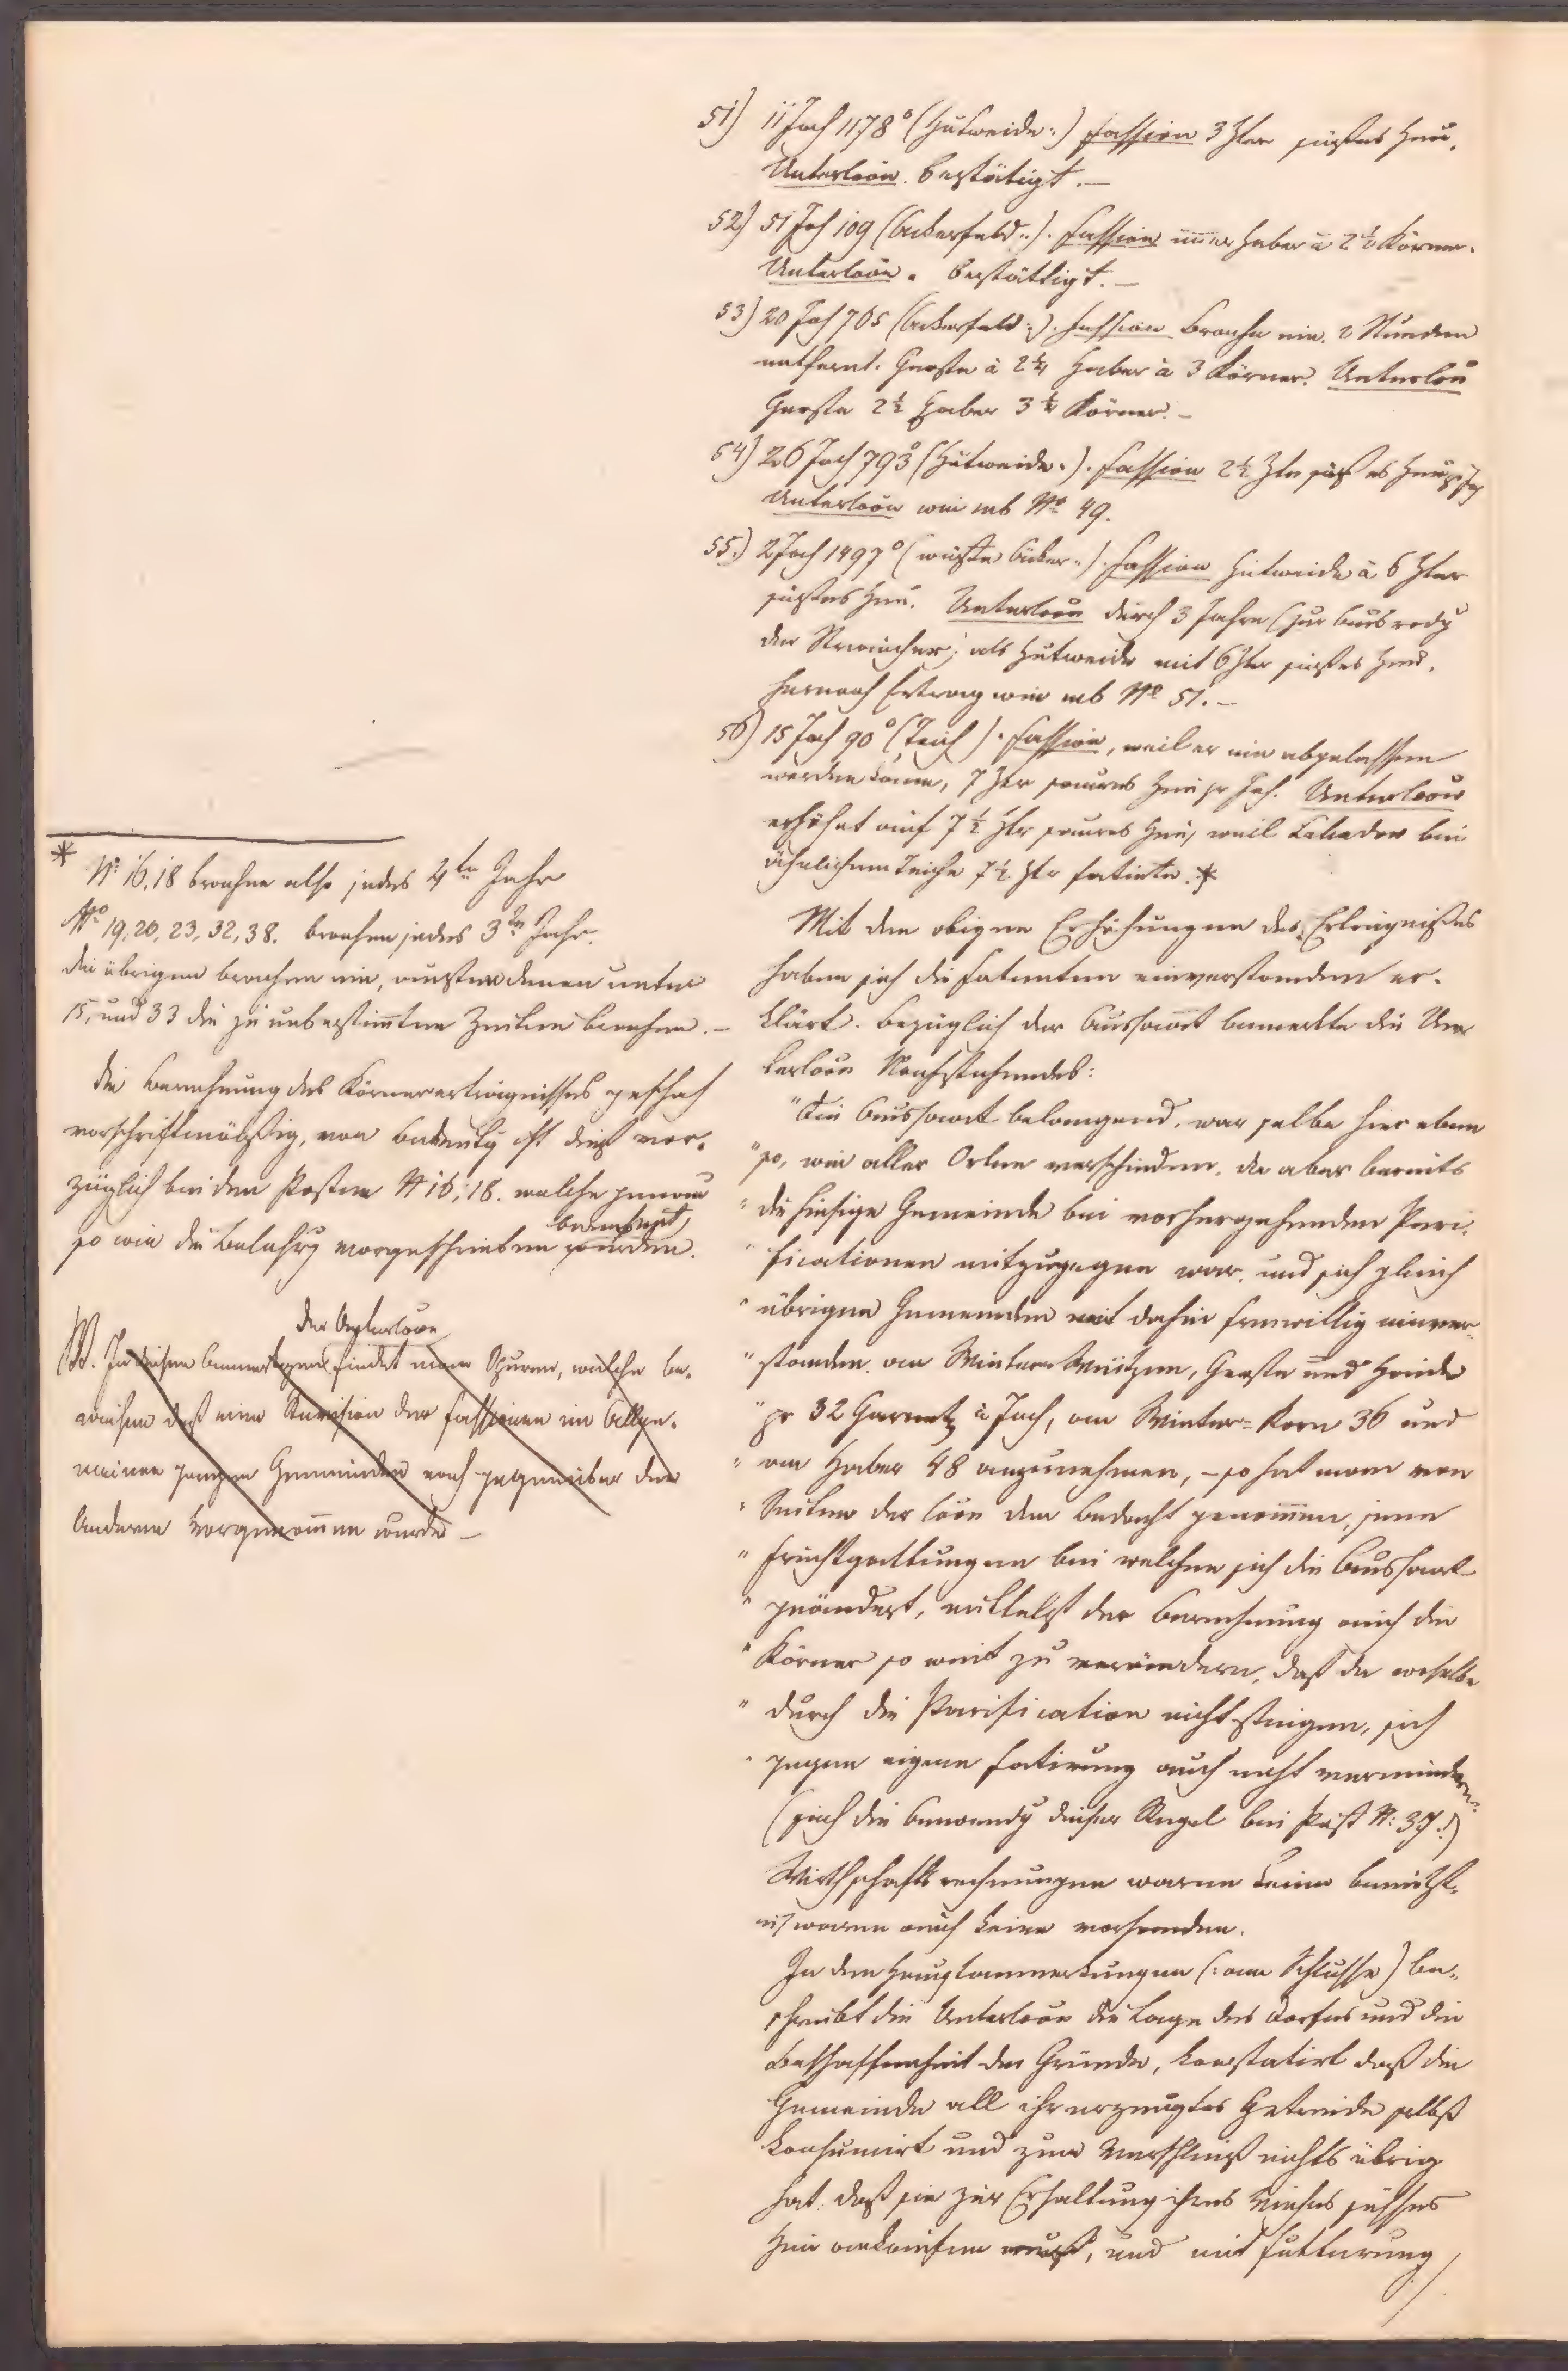 51) 11 Joch 1178° (Hutweide:) Fassion 3 Ztr süßes Heu.
Unterloön. bestätigt. —
52) 51 Joch 109 (Ackerfeld:). Fassion immer Haber à 2½ Körner.
Unterloön. bestättigt. —
53) 20 Joch 705 (Ackerfeld:). Fassion brache nie. 2 Stunden
entfernt. Gerste à 2¼ Haber à 3 Körner. Unterloön
Gerste 2½ Haber 3¼ Körner. —
54) 26 Joch 793° (Hutweide:). Fassion 2½ Ztr süßes Heu pr Joch
Unterloön wie ad No 49.
55.) 2 Joch 1497° (wüste Äcker:). Fassion Hutweide à 6 Ztr
süßes Heu. Unterloön durch 3 Jahre (zur Ausrodg
der Sträucher) als Hutweide mit 6 Ztr süßes Heu,
hernach Ertrag wie ad No 51. —
56) 15 Joch 90° (Teich). Fassion, weil er nie abgelassen
werden könne, 7 Ztr saures Heu pr Joch. Unterloön
erhöhet auf 7½ Ztr saures Heu, weil bei
ähnlichem Teiche 7½ Ztr fatirte. *
Mit den obigen Erhöhungen des Erträgnißes
haben sich die Fatenten einverstanden er-
klärt. Bezüglich der Aussaat bemerkte die Un-
terloön Nachstehendes:
"Die Aussaat belangend, war selbe hier eben
"so, wie aller Orten verschieden, da aber bereits
"die hiesige Gemeinde bei vorhergehenden Peri-
"ficationen mitzugegen war, und sich gleich
"übrigen Gemeinden mit dahin freiwillig einver-
"standen, an Winter-Weitzen, Gerste und Heide
"pr 32 Garnetz à Joch, an Winter-Korn 36 und
"an Haber 48 anzunehmen, – so hat man von
"Seiten der loön den Bedacht genommen, jene
"Fruchtgattungen bei welchen sich die Aussaat
"geändert, mittelst der Berechnung auch die
"Körner so weit zu verändern, daß da weselbe
"durch die Parification nicht steigen, sich
"gegen eigene Fatirung auch nicht vermindern
(sieh die Anwendg dieser Regel bei Post N: 37.!)
Wirthschaftsrechnungen waren keine benützt,
es waren auch keine vorhanden.
In den Hauptanmerkungen (: am Schlusse) be-
schreibt die Unterloön die Lage des Dorfes und die
Beschaffenheit der Gründe, konstatirt daß die
Gemeinde all ihr erzeugtes Getreide selbst
konsumirt und zum Verschleiß nichts übrig
hat, daß sie zur Erhaltung ihres Viehes süsses
Heu ankaufen muß, und mit Futterung
* N: 16, 18 brachen also jedes 4te Jahr
No 19, 20, 23, 32, 38. brachen jedes 3te Jahr.
die übrigen brachen nie, außer denen unter
15, und 33 die zu unbestimten Zeiten brachen. —
Die Berechnung des Körnererträgnisses geschah
vorschriftmäßig, von Bedeutg ist dieß vor-
züglich bei den Posten N 16, 18. welche genau
so wie die Belehrg vorgeschrieben berechnet wurden.
der Unterloön
NB. In diesen Bemerkungen findet man Spuren, welche be-
weisen daß eine Revision der Fassionen im Allge-
meinen ganzer Gemeinden noch gegenüber den
Anderen vorgenommen wurde —